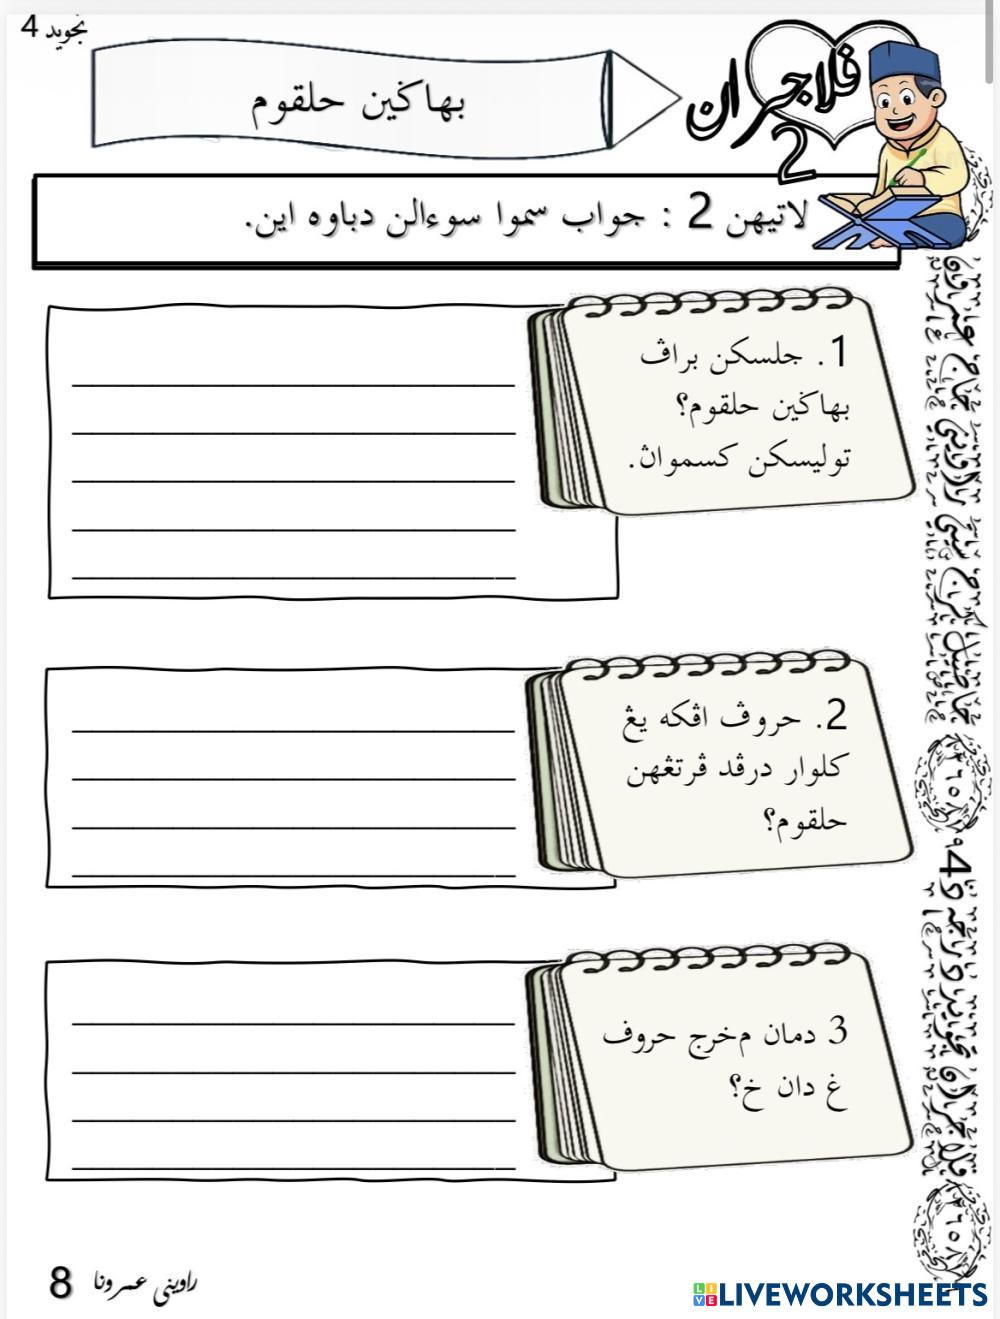 تجويد 4
بهاݢين حلقوم
ڤلاجرن 2
لاتيهن 2 : جواب سموا سوءالن دباوه اين.
1. جلسكن براڤ
بهاݢين حلقوم؟
توليسكن كسمواڽ.
2. حروف اڤكه يڠ
كلوار درڤد ڤرتڠهن
حلقوم؟
3 دمان مخرج حروف
غ دان خ؟
8
LIVEWORKSHEETS